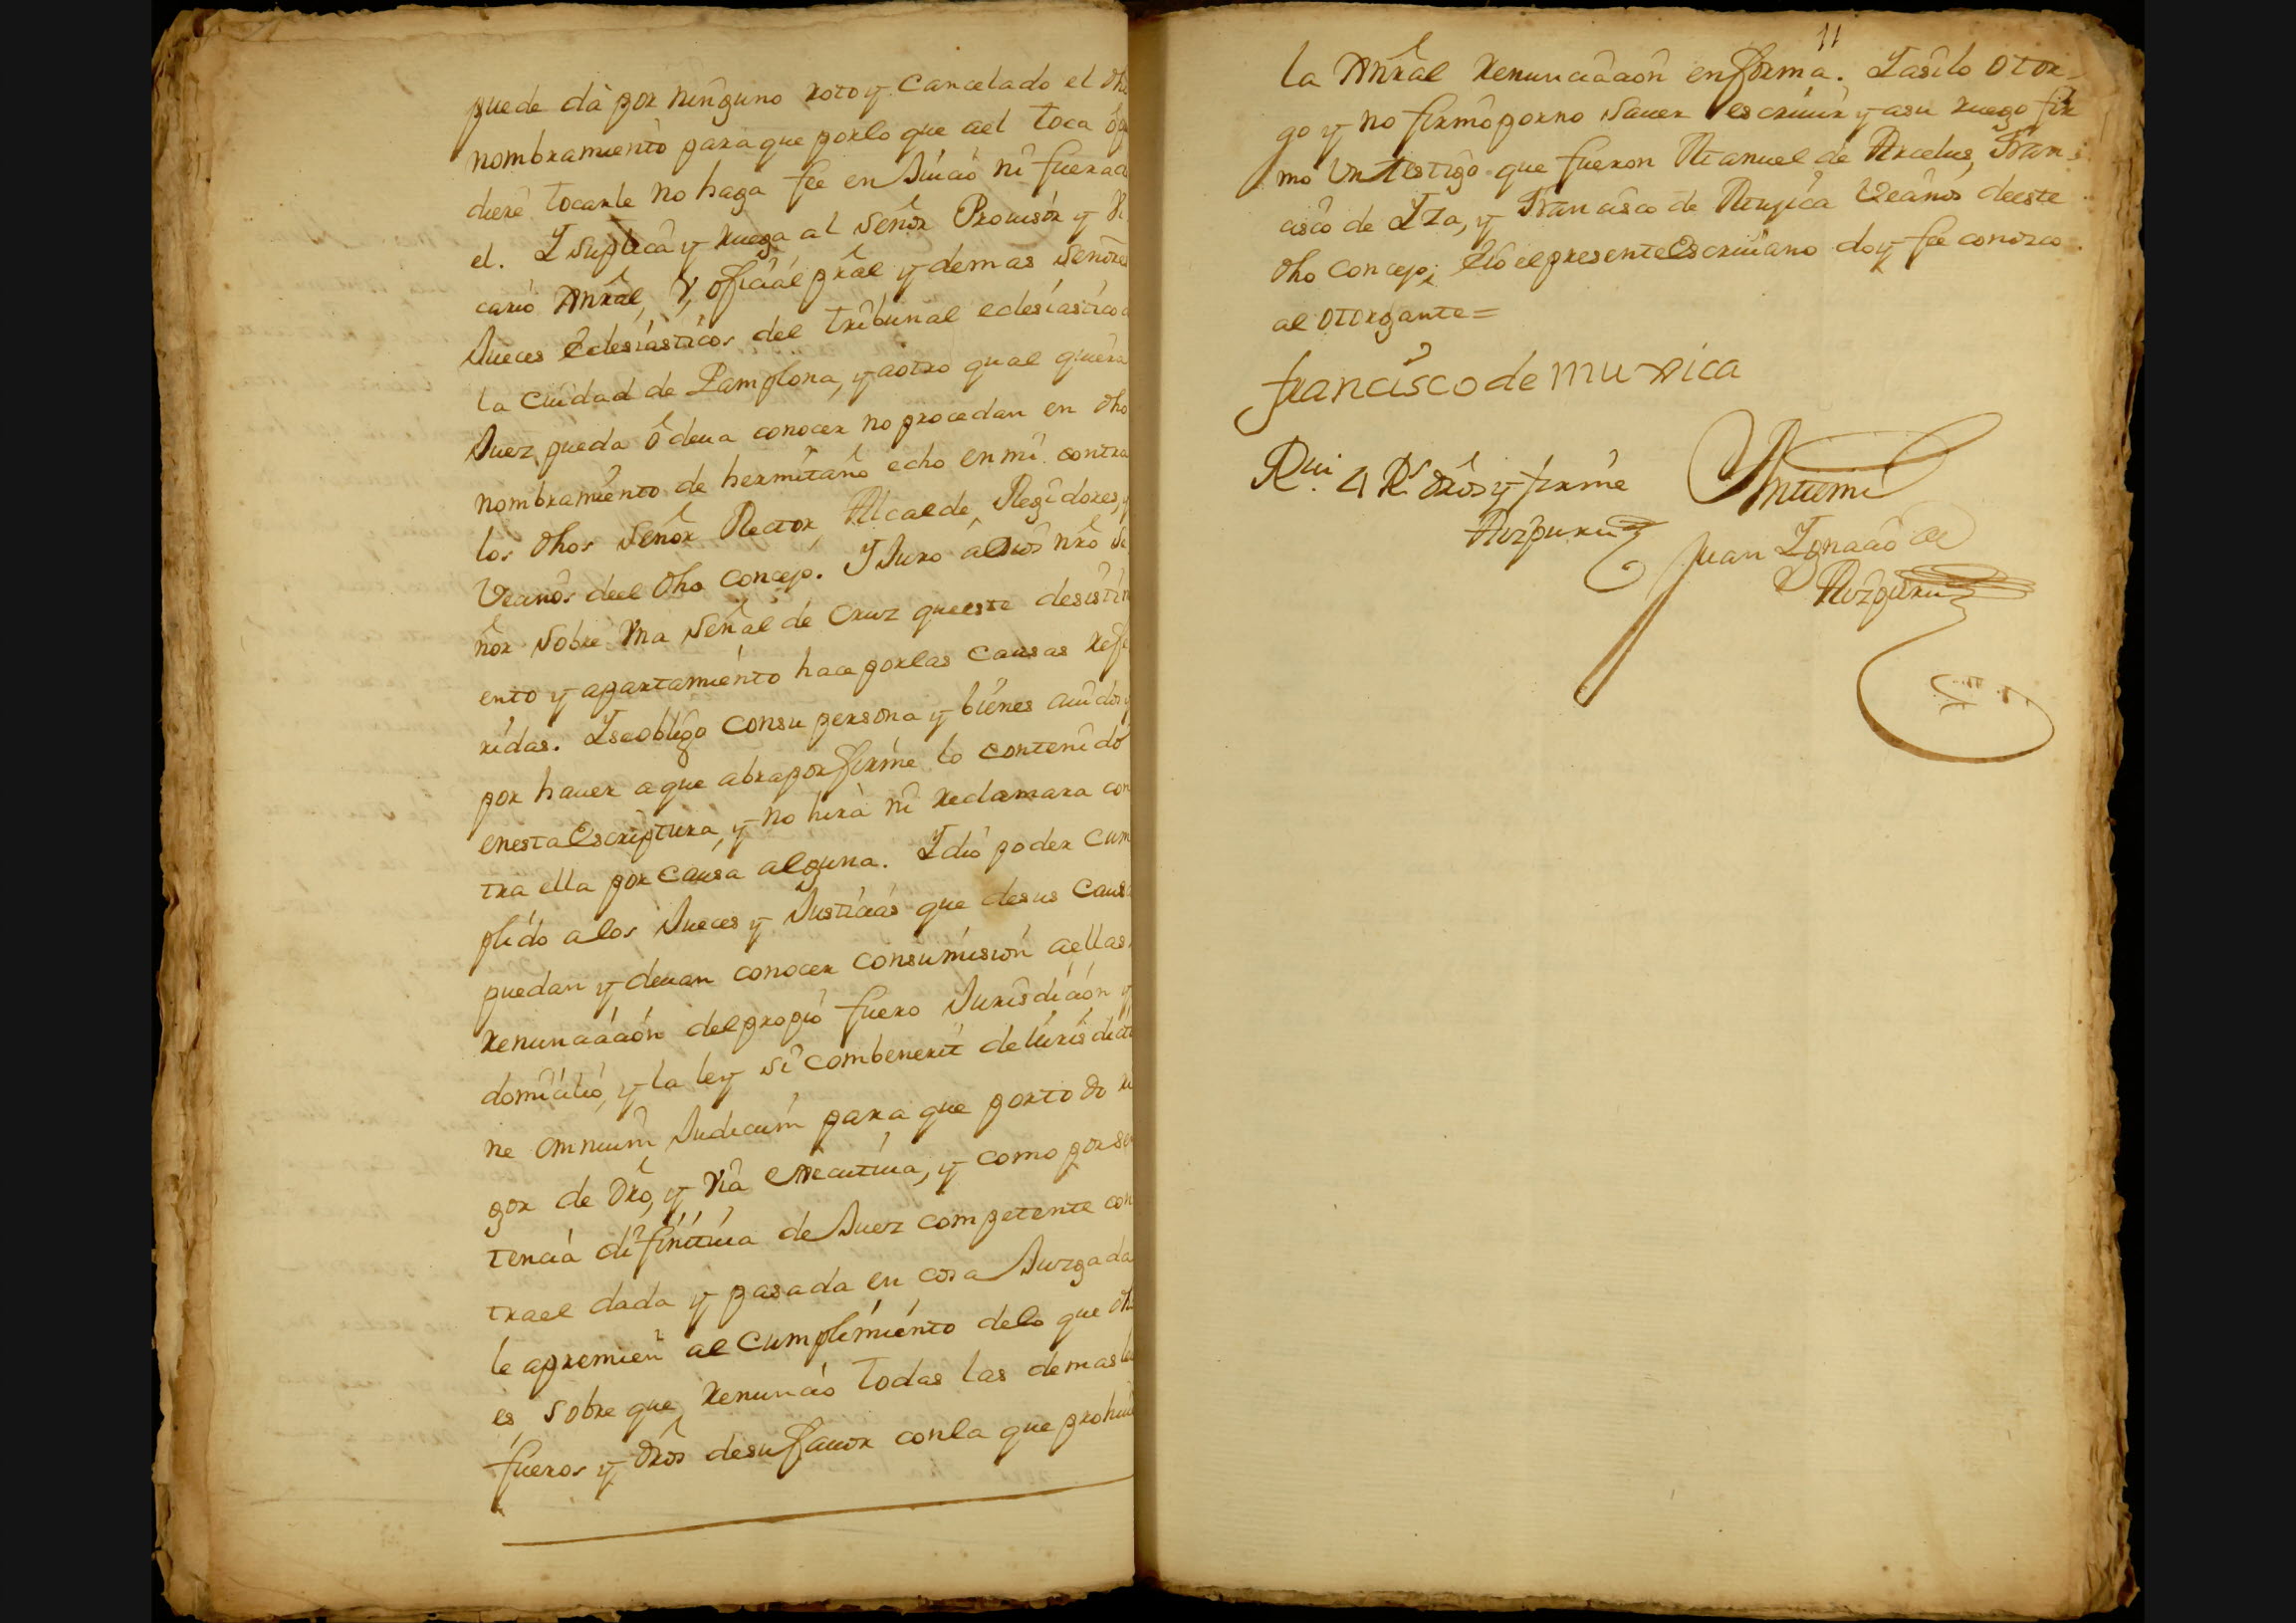 puede dà por ninguno roto y Cancelado el dho
nombramiento para que por lo que ael toca ó pu
diere tocarle no haga fee en Juicio ni fuera de
el. Y suplica y ruega al Señor Provisor y Vi
cario General, y oficial pral y demas señores
Jueces Eclesiasticos del tribunal eclesiastico
la Ciudad de Pamplona, y aotro qual quiera
Juez pueda ó deua conocer no procedan en dho
nombramiento de hermitaño echo en mi contra
los dhos Señor Rector, Alcalde, Regidores, y
Vecinos deel dho Concejo. Y Juro aDios nrô Se
ñor sobre Vna señal de Cruz queeste desistim
ento y apartamiento hace por las Causas refe
ridas. Y seobligo Consu persona y bienes auidos y
por hauer aque abra por firme lo contenido
enesta Escriptura, y no hirà ni reclamara con
tra ella por Causa alguna. Y dio poder Cum
plido alos Jueces y Justicias que desus Caus
puedan y deuan conocer consumision aellas
renunciacion del propio fuero Jurisdicion y
domicilio, y la ley si combenerit de Jurisdicti
ne omnium Judicum para que por todo ri
gor de drô, y via executiua, y como por sen
tencia difinitiua de Juez competente con
trael dada y pasada en cosa Juzgada
le apremien al Cumplimiento delo que dh
es sobre que renuncio todas las demas le
fueros y drôs desu fauor conla que prohiu
11
la General renunciacion enforma. Y asi lo otor-
go y no firmò porno sauer escriuir y asu ruego fir
mò vn testigo que fueron Manuel de Arcelus, Fran-
cisco de Yza, y Francisco de Mujica Vecinos deeste
dho Concejo; Eyo el presente Escriuano doy fee conozco
al otorgante=
francisco de muxica
Antemi
Juan Ygnacio de
Aizpuru